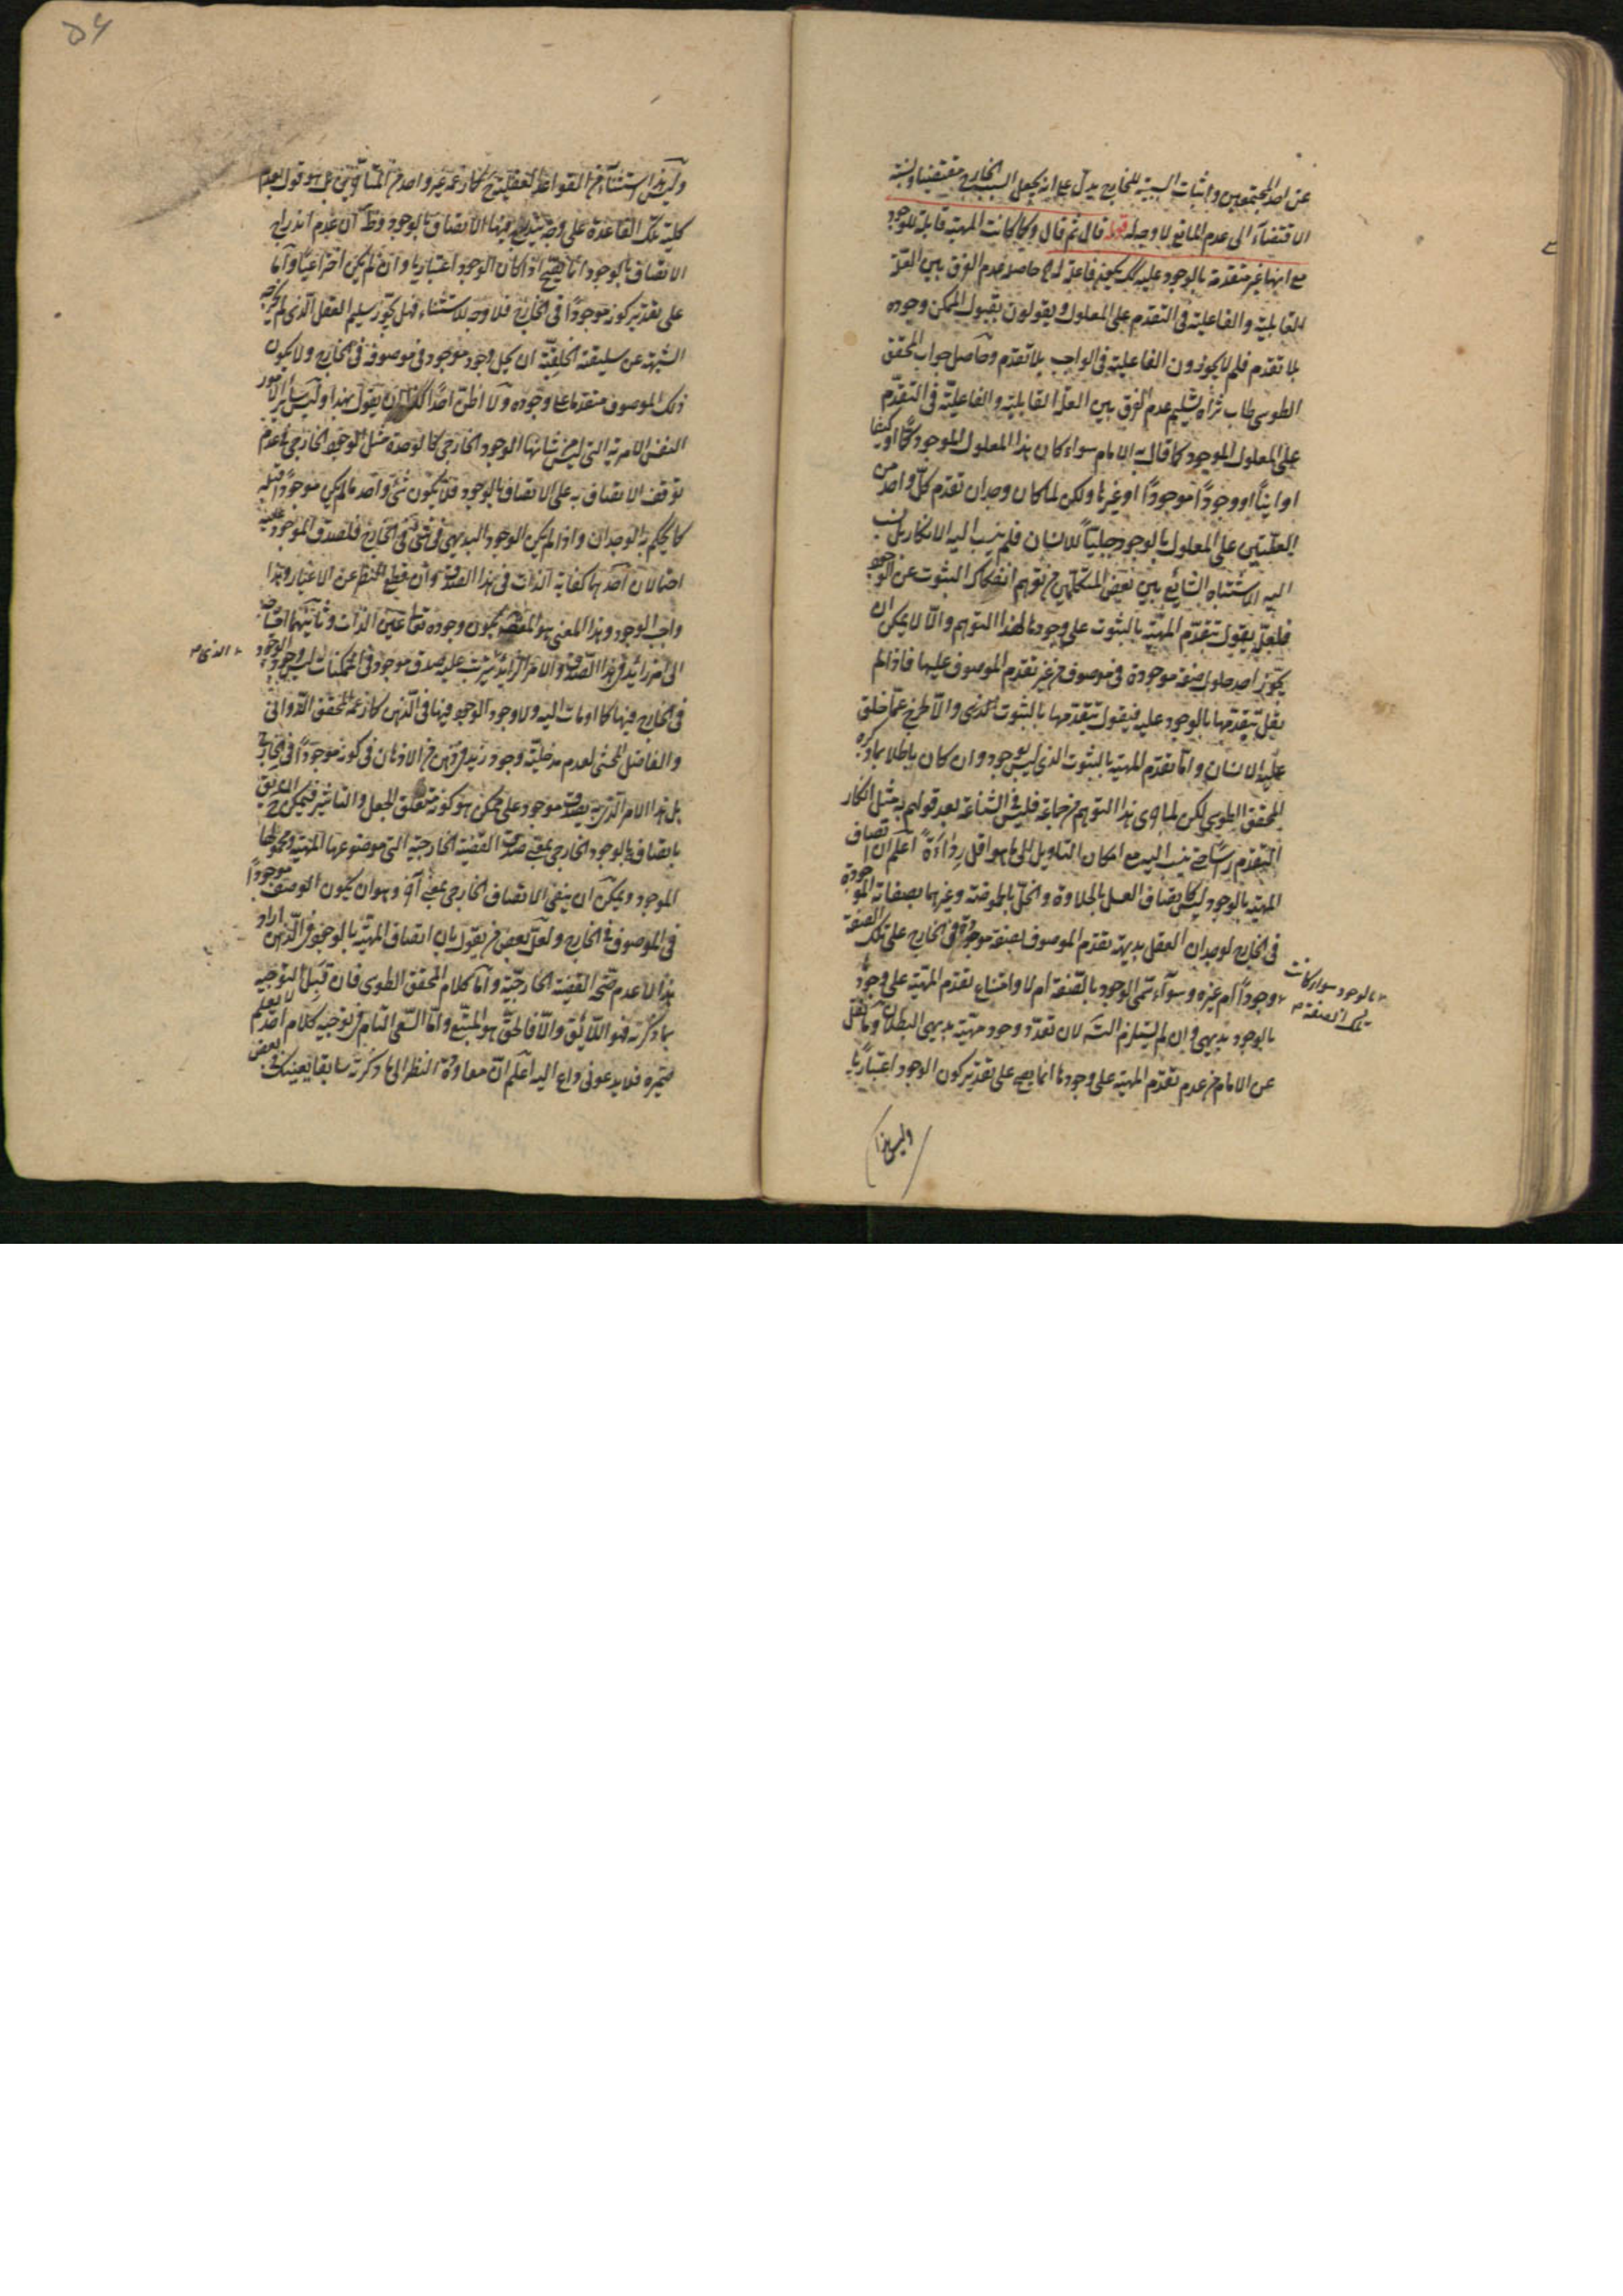 عن احد المجتمعين واثبات السببية للخارج يدل على انه يجعل السبب الخارج مقتضيا ونسبة
الاقتضاء الى عدم المانع لا وجه له قوله قال ثم قال وكما كانت المهية قابلة للوجود
مع انها غير متقدمة بالوجود عليه فاعلة له حاصله عدم الفرق بين العلة
القابلية والفاعلية فى التقدم على المعلول ويقولون بقبول الممكن وجوده
بلا تقدم فلم لا يجوزون الفاعلية فى الواجب بلا تقدم وحاصل جواب المحقق
الطوسى طاب ثراه تسليم عدم الفرق بين العلة القابلية والفاعلية فى التقدم
على المعلول الموجود كما قال به الامام سواء كان هذا المعلول الموجود كمّا او كيفا
او اينا او وجودًا موجودًا او غيرها ولكن لما كان وجدان تقدم كل واحد من
العلتين على المعلول بالوجود جبليّا للانسان فلم ينسب اليه الانكار بل نسب
اليه الاشتباه الشايع بين بعض المتكلمين من توهم انفكاك الثبوت عن الوجود
فلعله يقول بتقدم المهية بالثبوت على وجودها لهذا التوهم والّا لا يمكن ان
يجوّز احد حلول صفة موجودة فى موصوف من غير تقدم الموصوف عليها فاذا لم
يقل بتقدمها بالوجود عليه فيقول بتقدمها بالثبوت الذى والّا لخرج عما خلق
عليه الانسان واما تقدم المهية بالثبوت الذى ليس بوجود وان كان باطلا بما ذكره
المحقق الطوسى لكن لما اوى هذا التوهم من جماعة فليس فى الشناعة بعد قولهم به مثل انكار
التقدم رأسًا حتى ينسب اليه مع امكان التاويل الى ما هو اقل رداءة اعلم ان اتصاف
المهية بالوجود ليس كاتصاف العسل بالحلاوة والخل بالحموضة وغيرهما بصفاته الموجودة
فى الخارج لوجدان العقل بديهة تقدم الموصوف بصفة موجودة فى الخارج على تلك الصفة
بالوجود سواء كانت
تلك الصفة
وجودًا ام غيره وسواء سمى الوجود بالصفة ام لا وامتناع تقدم المهية على وجودها
بالوجود بديهى وان لم يستلزم التسلسل لان تعدد وجود مهية بديهى البطلان وما نقل
عن الامام من عدم تقدم المهية على وجودها انما يصح على تقدير كون الوجود اعتباريّا
وليس هذا
٥٤
وليس هذا استثناء من القواعد العقلية كما زعمه غير واحد من المتأخرين بل هو قول بعدم
كلية تلك القاعدة على وجه يندرج فيها الاتصاف بالوجود وظاهر ان عدم اندراج
الاتصاف بالوجود انما يصح اذا كان الوجود اعتباريا وان لم يكن اختراعيّا واما
على تقدير كونه موجودًا فى الخارج فلا وجه للاستثناء فهل يجوّز سليم العقل الذى لم يخرجه
الشبهة عن سليقته الخلقية ان يحل وجود موجود فى موصوف فى الخارج ولا يكون
ذلك الموصوف متقدما على وجوده ولا اظن احدًا ان يقول بهذا وليس ساير الامور
النفس الامرية التى ليس من شانها الوجود الخارجى كالوحدة مثل الوجود الخارجى فى عدم
توقف الاتصاف به على الاتصاف بالوجود فلا يكون شئ واحد ما لم يكن موجودًا
كما يحكم به الوجدان واذا لم يكن الوجود البديهى فى شئ فى الخارج فلصدق الموجود عليه
احتمالان احدهما كفاية الذات فى هذا الصدق وان قطع النظر عن الاغيار وهذا
واجب الوجود وهذا المعنى هو المقصود بكون وجوده تعالى عين الذات وثانيهما احتياجه
الى امر زائد فى هذا الصدق والامر الزائد يترتب عليه صدق موجود فى الممكنات ليس وجود
الذى
فى الخارج فيها كما اومأت اليه ولا وجود الوجود فيها فى الذهن كما زعمه المحقق الدوانى
والفاضل المحشى لعدم مدخلية وجود زيد فى ذهن من الاذهان فى كونه موجودًا فى الخارج
بل هذا الامر الذى به يصدق موجود على ممكن هو كونه متعلق الجعل والتاثير فيمكن التصديق
باتصافه بالوجود الخارجى بمعنى صدق القضية الخارجية التى موضوعها المهية ومحمولها
الموجود ويمكن ان ينفى الاتصاف الخارجى بمعنى آخر وهو ان يكون الوصف موجودًا
فى الموصوف فى الخارج ولعل بعض من يقول بان اتصاف المهية بالوجود فى الذهن اراد
هذا لا عدم صحة القضية الخارجية واما كلام المحقق الطوسى فان قبل التوجيه
بما ذكرته فهو اللائق والّا فالحق هو المتبع واما السعى التام فى توجيه كلام احد لا يعلم
ثمره فلا يدعونى داع اليه اعلم ان معاودة النظر الى ما ذكرته سابقا يعينك فى بعض